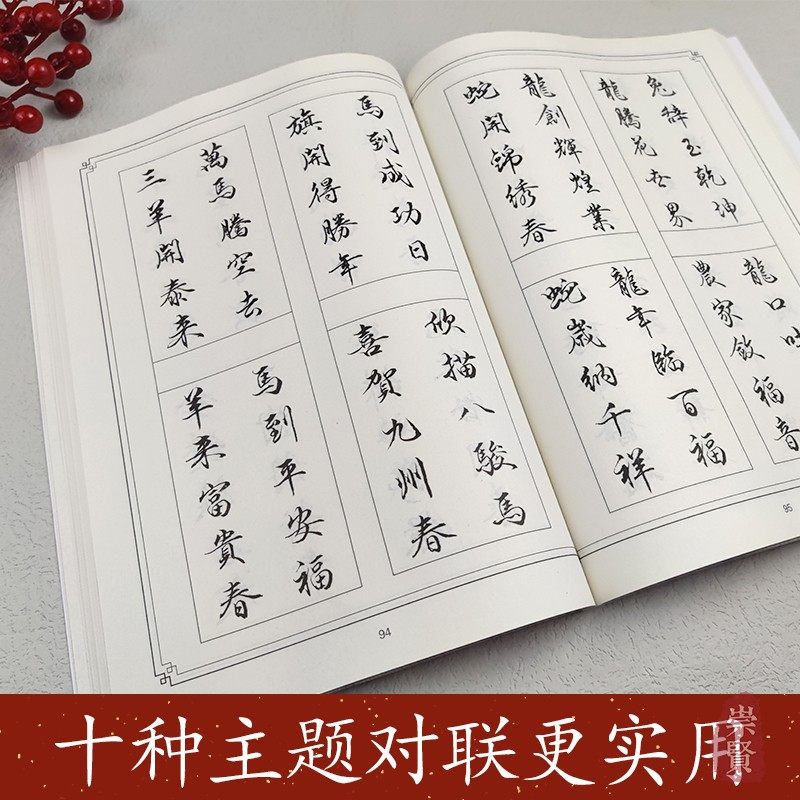 馬到成功日
旗開得勝年
萬馬騰空去
三羊開泰来
欣描八駿馬
喜賀九州春
馬到平安福
羊来富貴春
94
兔辞玉乾坤
龍騰花世界
龍創輝煌業
蛇開錦綉春
龍口
農家敘福音
龍年臨百福
蛇歲納千祥
95
十种主题对联更实用
崇賢